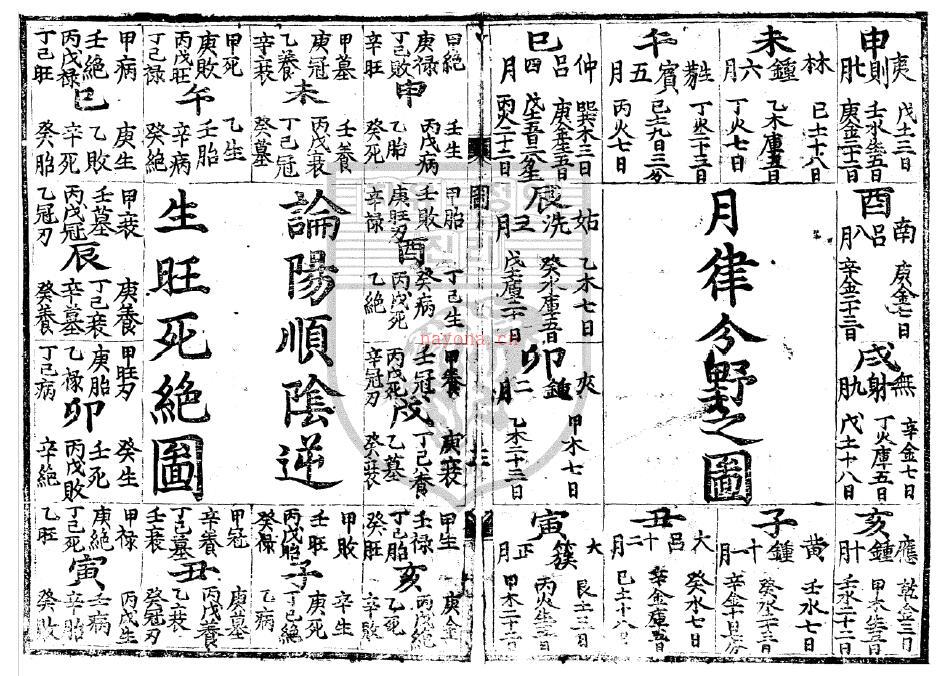 申
夷則七月
戊土三日
壬水生五日
未
林鍾六月
己土十八日
乙木庫五日
丁火七日
午
蕤賓五月
丁火十三日
己土九日三分
丙火七日
巳
仲呂四月
巽木三日
庚金生五日
酉
南呂八月
庚金七日
辛金二十三日
月律分野之圖
辰
姑洗三月
乙木七日
癸水庫五日
戌
無射九月
辛金七日
丁火庫五日
戊土十八日
卯
夾鍾二月
甲木七日
乙木二十三日
亥
應鍾十月
甲木生五日
壬水二十二日
子
黃鍾十一月
壬水七日
丑
大呂十二月
癸水七日
辛金庫五日
己土十八日
寅
大簇正月
艮土三日
丙火生五日
圖
申
庚祿
丁己敗
辛旺
壬生
丙戊病
乙胎
癸死
未
甲墓
庚冠
乙養
辛衰
壬養
丙戊衰
丁己冠
癸墓
午
甲死
庚敗
丙戊旺
丁己祿
乙生
壬胎
辛病
癸絕
巳
甲病
壬絕
丙戊祿
丁己旺
庚生
乙敗
辛死
癸胎
酉
甲胎
壬敗
庚旺刃
辛祿
丁己生
癸病
丙戊死
乙絕
論陽順陰逆
生旺死絕圖
辰
甲衰
壬墓
丙戊冠
乙冠刃
庚養
丁己衰
辛墓
癸養
戌
甲養
壬冠
丙戊死
辛冠刃
庚衰
丁己養
乙墓
癸衰
卯
甲旺刃
庚胎
乙祿
丁己病
癸生
壬死
丙戊敗
辛絕
亥
甲生
壬祿
丁己胎
癸旺
丙戊絕
乙死
辛敗
子
甲敗
壬旺
丙戊胎
癸祿
辛生
庚死
丁己絕
乙病
丑
甲冠
辛養
丁己墓
壬衰
庚墓
丙戊養
乙衰
癸冠刃
寅
甲祿
庚絕
丁己死
乙旺
丙戊生
壬病
辛胎
癸敗